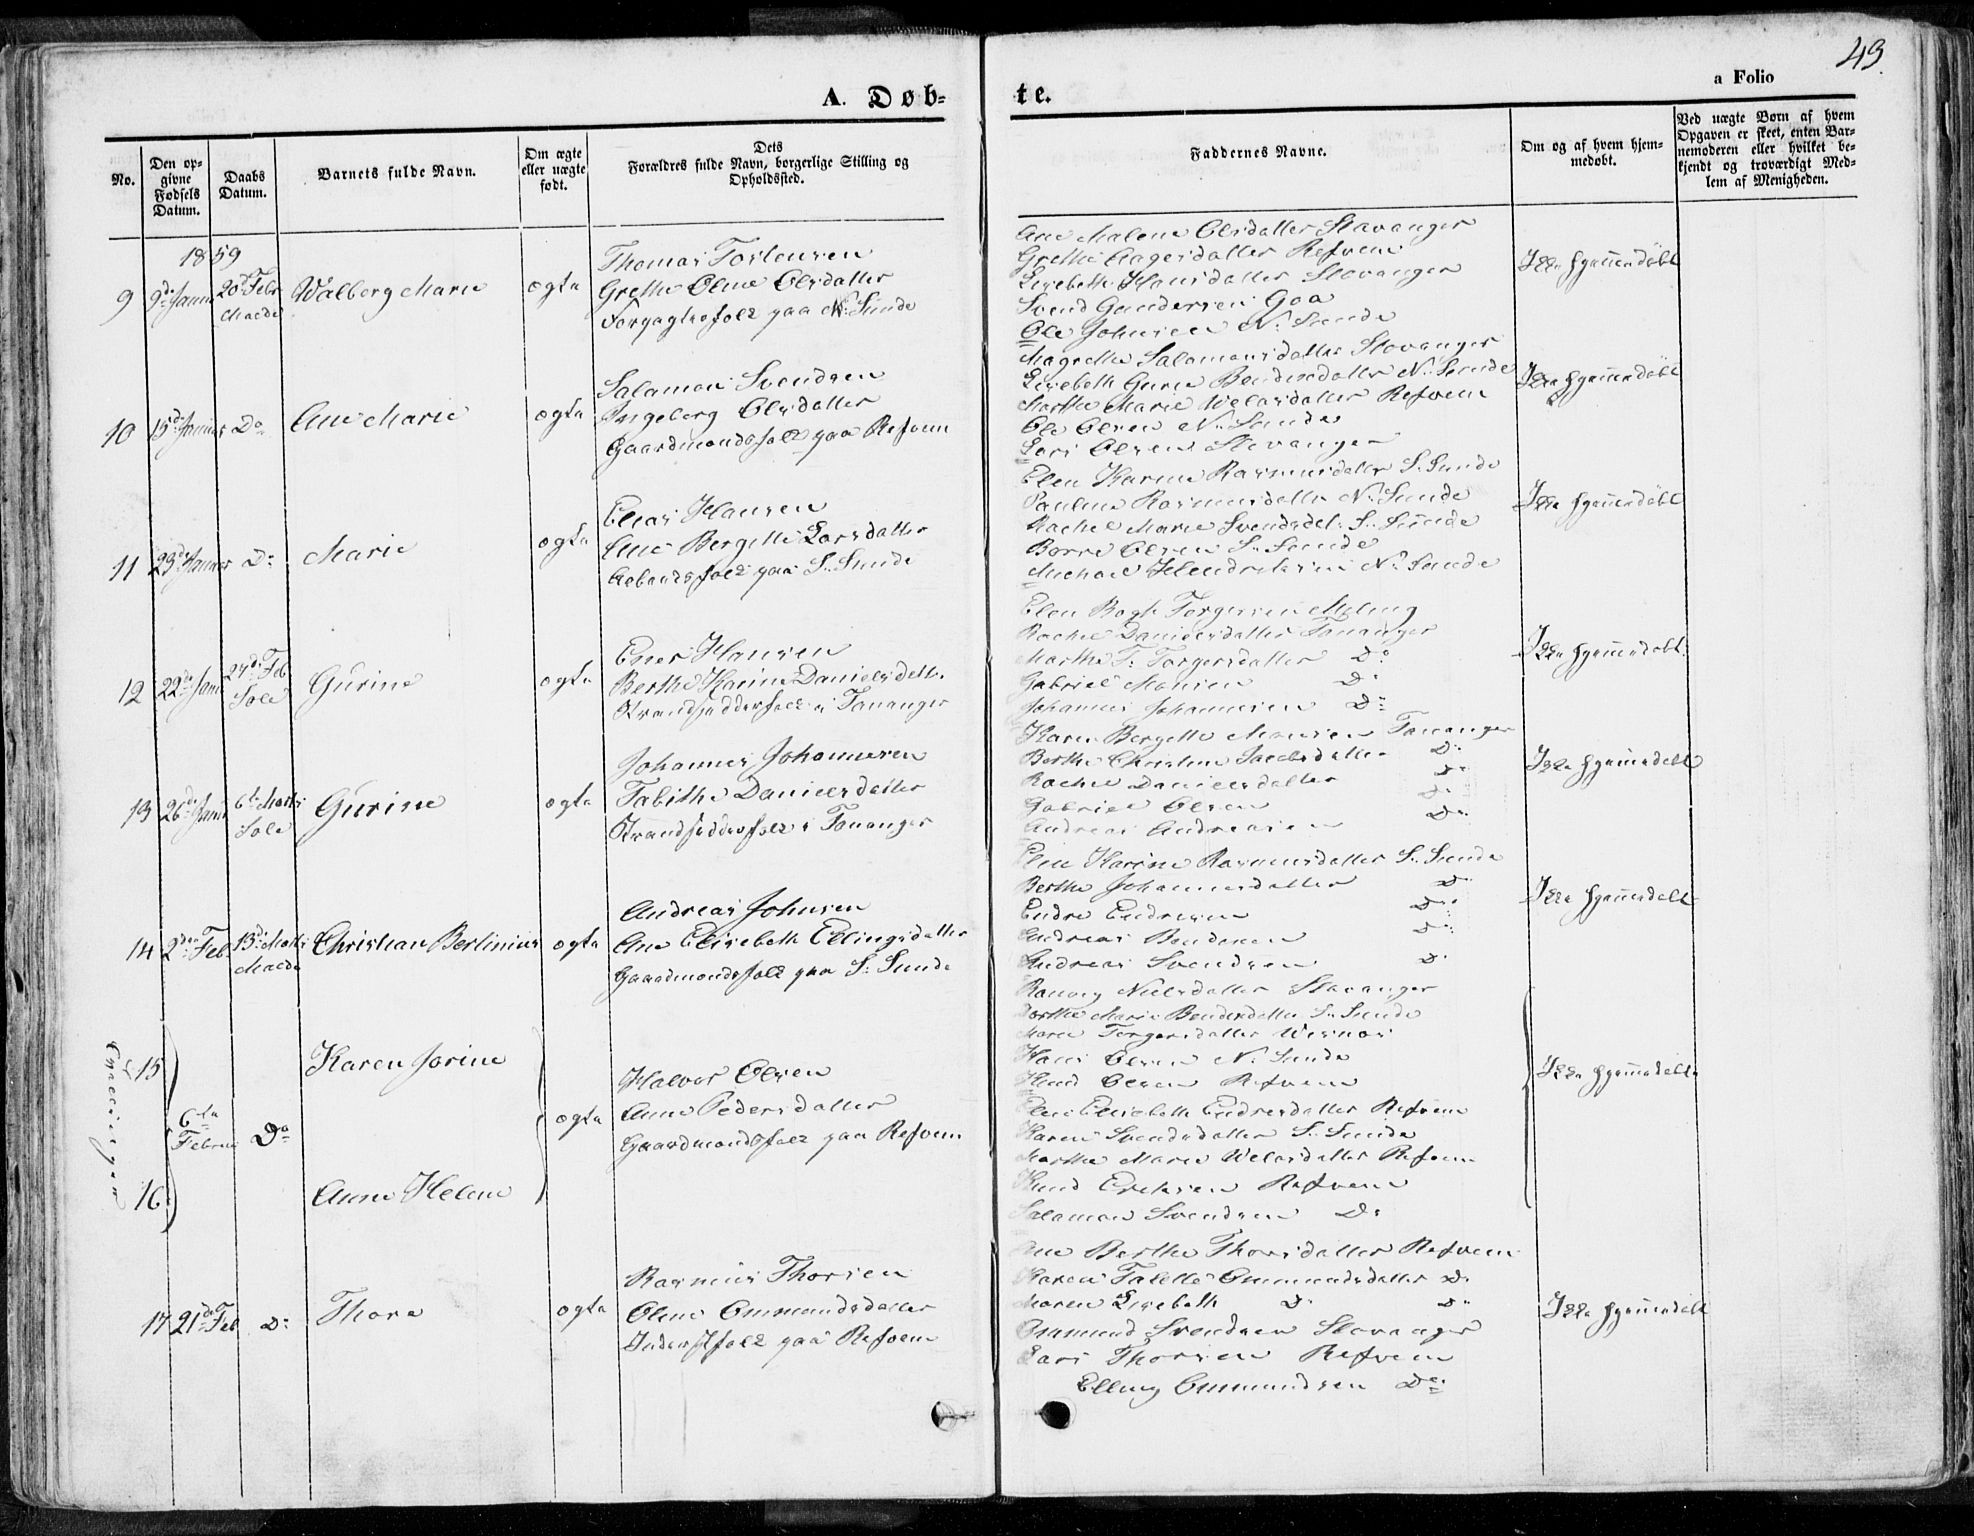 43.
a Folio
A. Døb-
te.
No.
Den op-
givne
Fødsels
Datum.
Daabs
Datum.
Barnets fulde Navn.
Om ægte
eller uægte
født.
Dets
Forældres fulde Navn, borgerlige Stilling og
Opholdssted.
Faddernes Navne.
Om og af hvem hjem-
medøbt.
Ved uægte Børn af hvem
Opgaven er skeet, enten Bar-
nemoderen eller hvilket be-
kjendt og troværdigt Med-
lem af Menigheden.
1859
9 9de Janu 20de Febr Walborg Marie ægte
Madla
Thomas Torstensen
Grethe Oline Olsdatter
folk paa N. Sunde
Ane Malene Olsdatter Stavanger
Grethe Aagesdatter Refvem
Lisebeth Hansdatter Stavanger
Svend Gundersen Goa
Ole Johnsen N. Sunde
Ikke hjemmedøbt
10 15de Januar Do Ane Marie ægte
Salamon Svendsen
Ingeborg Olsdatter
Gaardmandsfolk paa Refvem
Magrethe Salamonsdatter Stavanger
Lisebeth Gurie Bendixdatter N. Sunde
Marthe Marie Welasdatter Refvem
Ole Olsen N. Sunde
Lars Olsen Stavanger
Ikke hjemmedøbt
11 23de Januar Do Marie ægte
Elias Hansen
Ane Bergitte Larsdatter
folk paa S. Sunde
Elen Karine Rasmusdatter S. Sunde
Pauline Rasmusdatter N. Sunde
Rachel Marie Svendsdat. S. Sunde
Børre Olsen S. Sunde
Michael Hendriksen N. Sunde
Ikke hjemmedøbt
12 22de Janu 27de Feb Gurine ægte
Sole
Ener Hansen
Berthe Karine Danielsdatt.
Strandsidderfolk i Tananger
Elen Torgersen Myling
Rachel Danielsdatter Tananger
Marthe T. Torgersdatter Do
Gabriel Monsen Do
Johannes Johannesen Do
Ikke hjemmedøbt.
13 26de Janu 6te Marts Gurine ægte
Sole
Johannes Johannesen
Tabithe Danielsdatter
Strandsidderfolk i Tananger
Karen Bergitte Monsen Tananger
Berthe Christine Jacobsdatter Do
Rachel Danielsdatter Do
Gabriel Olsen Do
Andreas Andreasen Do
Ikke hjemmedøbt
14 2den Feb. 13de Marts Christian Berlinius ægte
Madla
Andreas Johnsen
Ane Elisebeth Ellingsdatter
Gaardmandsfolk paa S. Sunde
Elen Karine Rasmusdatter S. Sunde
Berthe Johannesdatter Do
Endre Endresen Do
Andreas Bendixen Do
Andreas Svendsen Do
Ikke hjemmedøbt
Tvillinger
15 Karen Jorine
6te
Februar Do
ægte
16 Anne Helene
Halvor Olsen
Anne Pedersdatter
Gaardmandsfolk paa Refvem
Ranveig Nielsdatter Stavanger
Dorthe Marie Bendixdatter S. Sunde
Maren Torgersdatter
Hans Olsen N. Sunde
Knud Olsen Refvem
Elen Elisebeth Endresdatter Refvem
Karen Svendsdatter S. Sunde
Marthe Marie Welasdatter Refvem
Knud Eriksen Refvem
Salamon Svendsen Do
Ikke hjemmedøbte
17 21de Feb Do Thore ægte
Rasmus Thorsen
Oline Ommundsdatter
Inderstfolk paa Refvem
Ane Berthe Thorsdatter Refvem
Karen Talette Ommundsdatter Do
Maren Lisebeth Do Do
Ommund Svendsen Stavanger
Lars Thorsen Refvem
Elling Ommundsen Do
Ikke hjemmedøbt